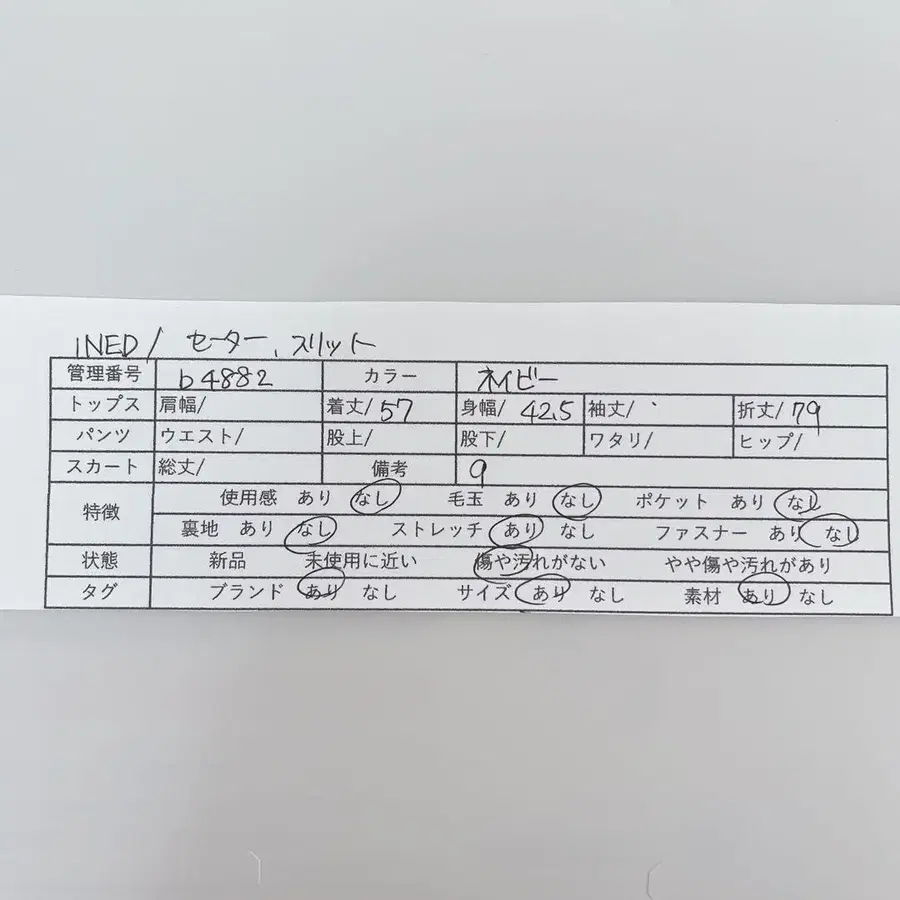 INED/ セーター、スリット
管理番号 b4882 カラー ネイビー
トップス 肩幅/ 着丈/57 身幅/42.5 袖丈/ 裄丈/79
パンツ ウエスト/ 股上/ 股下/ ワタリ/ ヒップ/
スカート 総丈/ 備考 9
特徴 使用感 あり なし 毛玉 あり なし ポケット あり なし
裏地 あり なし ストレッチ あり なし ファスナー あり なし
状態 新品 未使用に近い 傷や汚れがない やや傷や汚れがあり
タグ ブランド あり なし サイズ あり なし 素材 あり なし